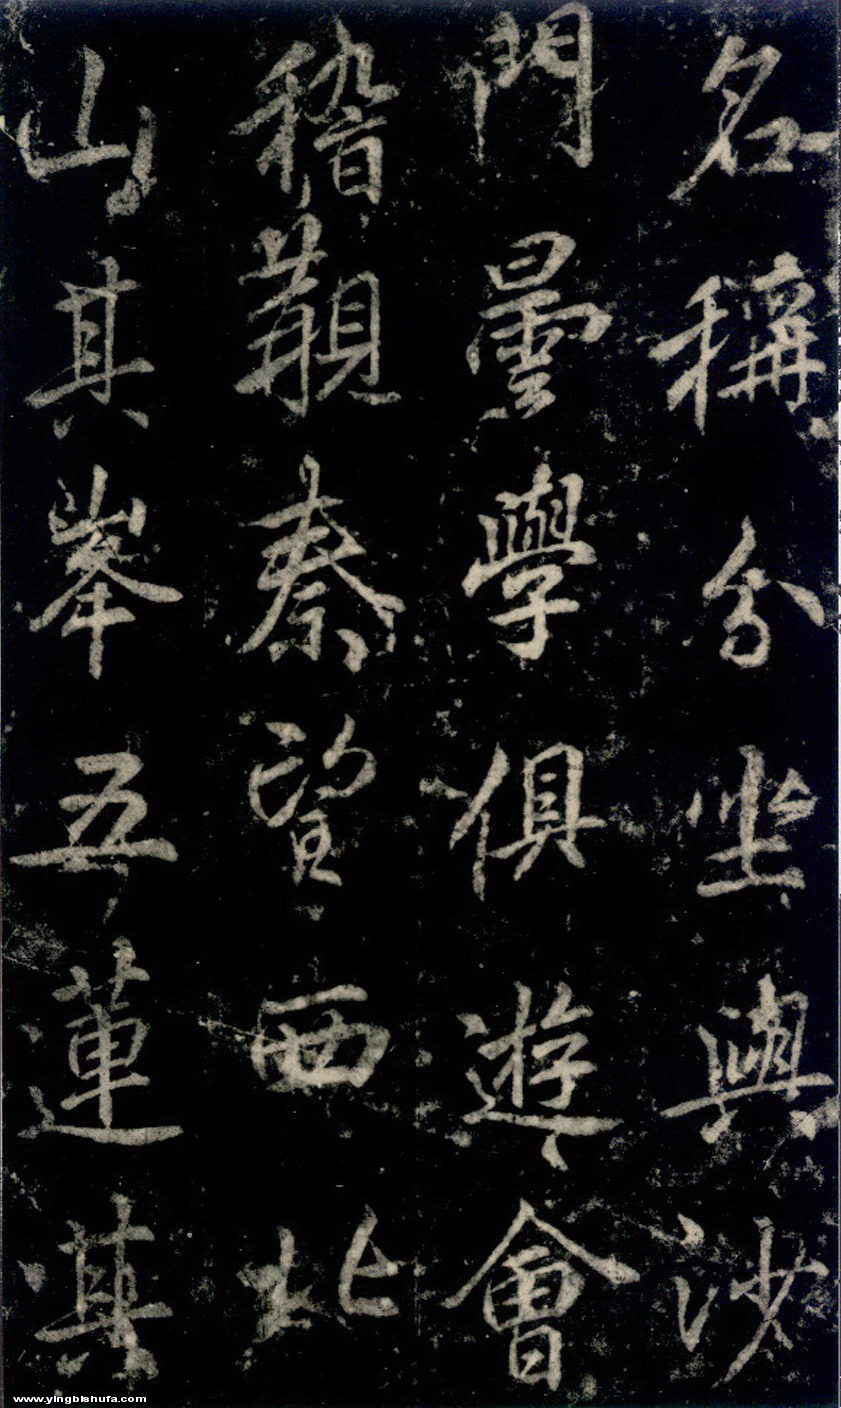 名稱分坐與沙
門曇學俱遊會
稽觀秦望西北
山其峯五蓮其
www.yingbishufa.com